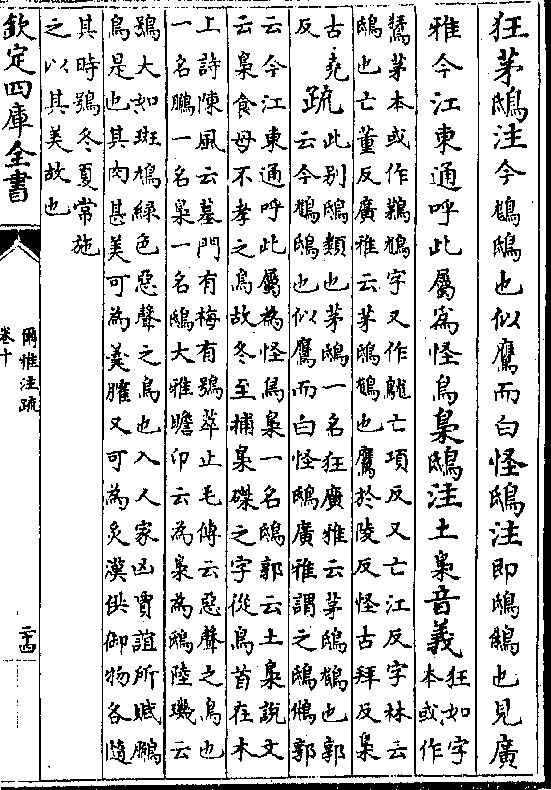 狂茅鴟注今鵵鴟也似鷹而白怪鴟注即鴟鵂也見廣
雅今江東通呼此屬為怪鳥梟鴟注土梟音義
狂如字
本或作
鶩茅本或作鶜鳩字又作鶜亡項反又亡江反字林云
鴟也亡董反廣雅云茅鴟鵵也鷹於陵反怪古拜反梟
古堯
反
疏
此别鴟類也茅鴟一名狂廣雅云茅鴟鵵也郭
云今鵵鴟也似鷹而白怪鴟廣雅謂之鴟鵂郭
云今江東通呼此屬為怪鳥梟一名鴟郭云土梟說文
云梟食母不孝之鳥故冬至捕梟磔之字從鳥首在木
上詩陳風云墓門有梅有鴞萃止毛傳云惡聲之鳥也
一名鵩一名梟一名鴟大雅瞻卬云為梟為鴟陸璣云
鴞大如斑鳩綠色惡聲之鳥也入人家凶賈誼所賦鵩
鳥是也其肉甚美可為羮臛又可為炙漢供御物各隨
其時鴞冬夏常施
之以其美故也
欽定四庫全書
爾雅注疏
卷十
二十四